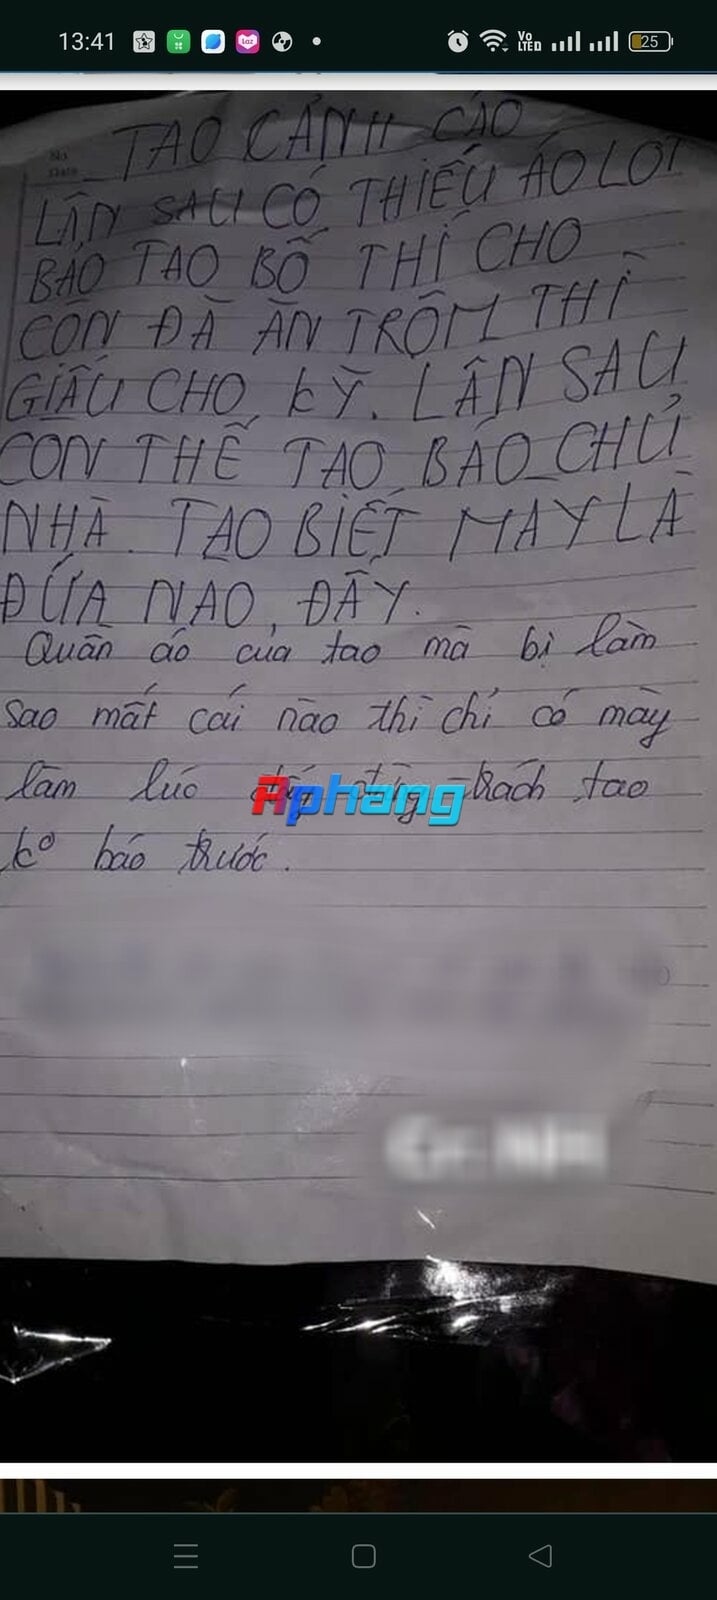 13:41 Laz Vo LTE 25
No.
Date
TAO CẢNH CÁO
LẦN SAU CÓ THIẾU ÁO LÓT
BẢO TAO BỐ THÍ CHO
CÒN ĐÃ ĂN TRỘM THÌ
GIẤU CHO KỸ. LẦN SAU
CÒN THẾ TAO BÁO CHỦ
NHÀ. TAO BIẾT MÀY LÀ
ĐỨA NÀO ĐẤY.
Quần áo của tao mà bị làm
sao mất cái nào thì chỉ có mày
làm lúc trách tao
Aphang
k° báo trước.